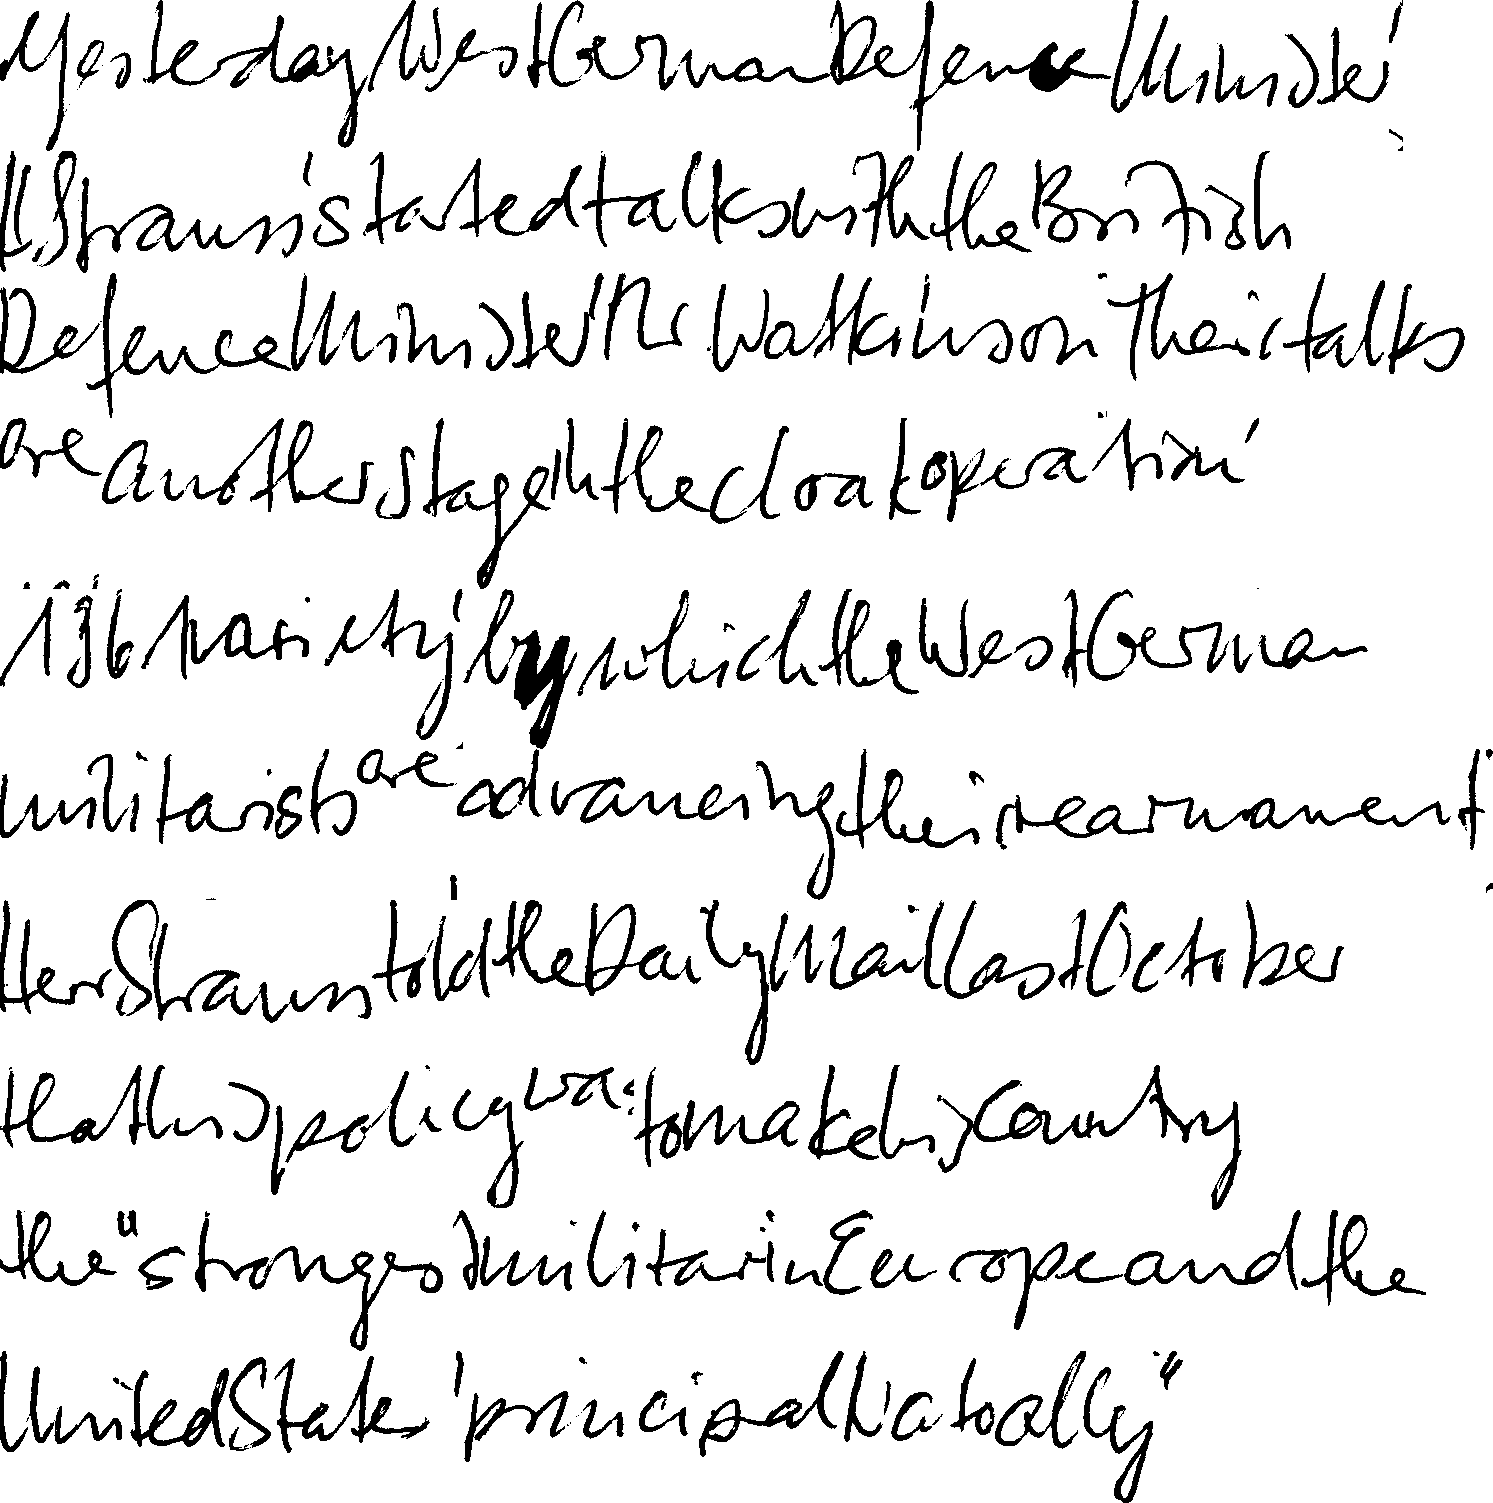 Yesterday West German Defence Minister
H. Strauss started talks with the British
Defence Minister Mr Watkinson Their talks
are another stage in the cloak operation
1961 variety by which the West German
militarists are advancing their rearmament
Herr Strauss told the Daily Mail last October
that his policy was to make his country
the "strongest militari in Europe and the
United States' principal Nato ally"